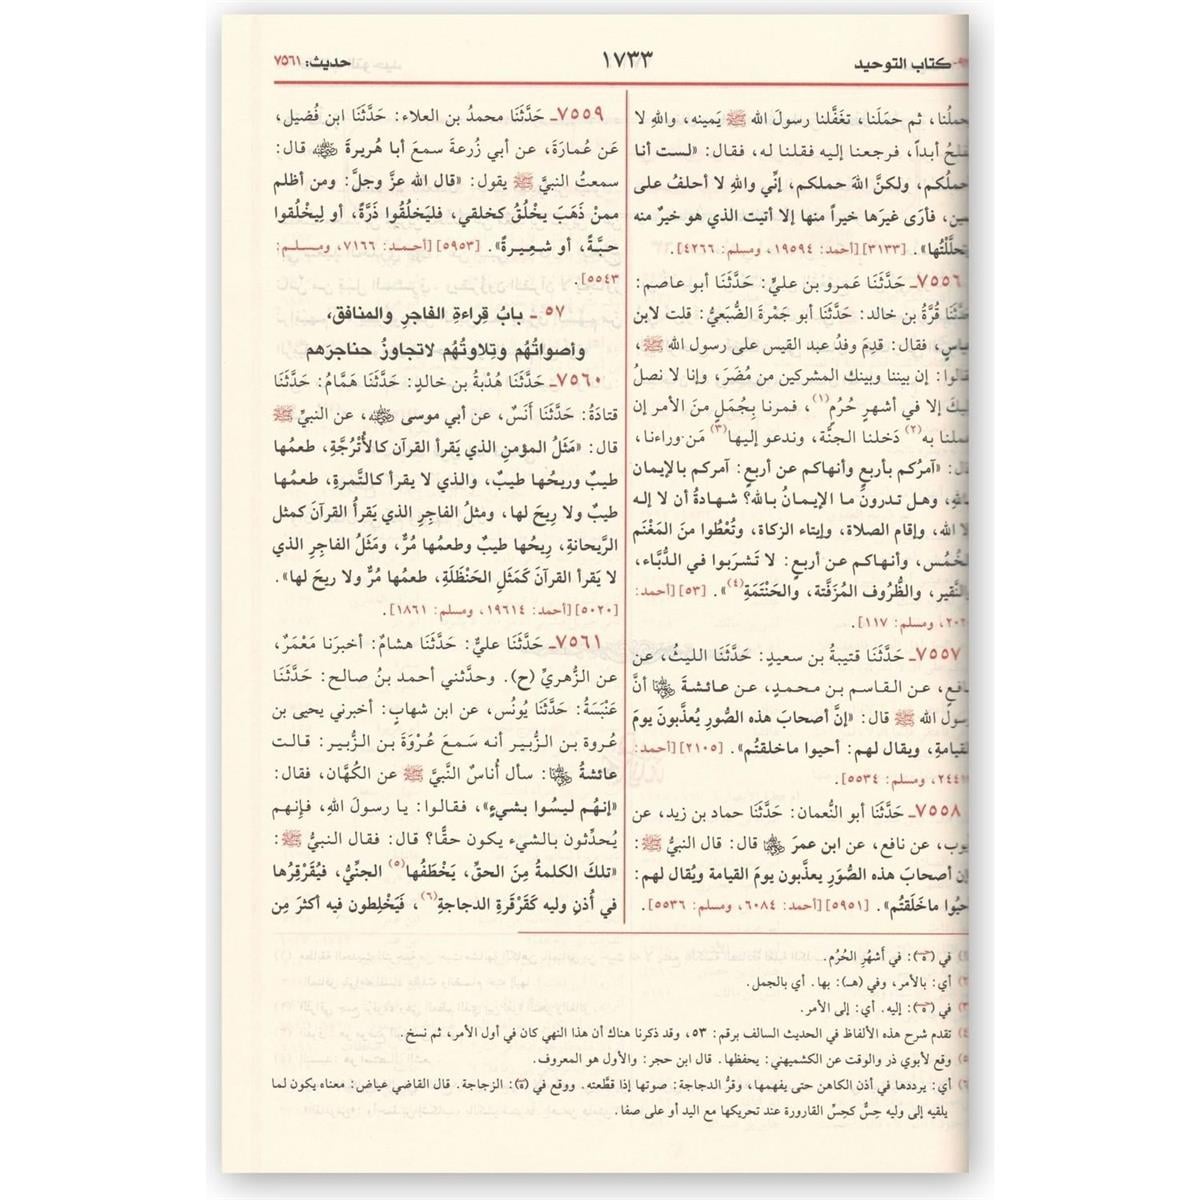 كتاب التوحيد
١٧٣٣
حديث: ٧٥٦١
حملَنا، ثم حمَلَنا، تغَفَّلنا رسولَ الله ﷺ يَمينه، والله لا
أبداً، فرجعنا إليه فقلنا له، فقال: «لست أنا
ولكنَّ اللهَ حملكم، إنّي واللهِ لا أحلفُ على
فأرَى غيرَها خيراً منها إلا أتيت الذي هو خيرٌ منه
[٣١٣٣] [أحمد: ١٩٥٩٤، ومسلم: ٤٢٦٦].
٧٥٥٦ـ حَدَّثَنَا عَمرو بن عليٍّ: حَدَّثَنَا أبو عاصم:
قُرَّةُ بن خالد: حَدَّثَنَا أبو جَمْرةَ الضُّبَعيُّ: قلت لابن
فقال: قدِمَ وفدُ عبد القيس على رسول الله ﷺ،
إن بيننا وبينك المشركين من مُضَرَ، وإنا لا نصلُ
إلا في أشهرٍ حُرُمٍ(١)، فمرنا بجُمَلٍ منَ الأمر إن
عملنا به(٢) دَخلنا الجنَّة، وندعو إليها(٣) مَن وراءنا،
«آمرُكم بأربع وأنهاكم عن أربع: آمركم بالإيمان
وهل تدرونَ ما الإيمانُ بالله؟ شهادةُ أن لا إله
الله، وإقام الصلاة، وإيتاء الزكاة، وتُعْطُوا منَ المَغْنَم
الخُمُس، وأنهاكم عن أربعٍ: لا تَشرَبوا في الدُّبَّاء،
والنَّقير، والظُّروف المُزَفَّتة، والحَنْتَمَةِ(٤)». [٥٣] [أحمد:
ومسلم: ١١٧].
٧٥٥٧ـ حَدَّثَنَا قتيبةُ بن سعيدٍ: حَدَّثَنَا الليثُ، عن
عن القاسم بن محمدٍ، عن عائشةَ رضي الله عنها أنَّ
رسولَ الله ﷺ قال: «إنَّ أصحابَ هذه الصُّورِ يُعذَّبونَ يومَ
القيامةِ، ويقال لهم: أحيوا ما خلقتُم». [٢١٠٥] [أحمد:
ومسلم: ٥٥٣٤].
٧٥٥٨ـ حَدَّثَنَا أبو النُّعمان: حَدَّثَنَا حماد بن زيد، عن
عن نافع، عن ابن عمرَ رضي الله عنهما قال: قال النبيُّ ﷺ:
أصحابَ هذه الصُّوَرِ يعذَّبون يومَ القيامة ويُقال لهم:
أحيُوا ما خَلَقتُم». [٥٩٥١] [أحمد: ٦٠٨٤، ومسلم: ٥٥٣٦].
٧٥٥٩ـ حَدَّثَنَا محمدُ بن العلاء: حَدَّثَنَا ابن فُضيل،
عَن عُمارَةَ، عن أبي زُرعةَ سمعَ أبا هُريرةَ رضي الله عنه قال:
سمعتُ النبيَّ ﷺ يقول: «قال الله عزَّ وجلَّ: ومن أظلم
ممنْ ذَهَبَ يخْلُقُ كخلقي، فليَخلُقُوا ذَرَّةً، أو لِيخْلُقوا
حبَّةً، أو شعِيرةً». [٥٩٥٣] [أحمد: ٧١٦٦، ومسلم:
٥٥٤٣].
٥٧ ـ بابُ قِراءةِ الفاجرِ والمنافق،
وأصواتُهُم وتِلاوتُهُم لا تجاوزُ حناجرَهم
٧٥٦٠ـ حَدَّثَنَا هُدْبةُ بن خالدٍ: حَدَّثَنَا هَمَّامٌ: حَدَّثَنَا
قتادَةُ: حَدَّثَنَا أنَسٌ، عن أبي موسى رضي الله عنه، عن النبيِّ ﷺ
قال: «مَثَلُ المؤمنِ الذي يَقرأ القرآن كالأُتْرُجَّةِ، طعمُها
طيبٌ وريحُها طيبٌ، والذي لا يقرأ كالتَّمرةِ، طعمُها
طيبٌ ولا ريحَ لها، ومثلُ الفاجِرِ الذي يَقرأُ القرآنَ كمثلِ
الرَّيحانةِ، رِيحُها طيبٌ وطعمُها مُرٌّ، ومَثَلُ الفاجِرِ الذي
لا يَقرأ القرآنَ كَمَثَلِ الحَنْظَلَةِ، طعمُها مُرٌّ ولا ريحَ لها».
[٥٠٢٠] [أحمد: ١٩٦١٤، ومسلم: ١٨٦١].
٧٥٦١ـ حَدَّثَنَا عليٌّ: حَدَّثَنَا هشامٌ: أخبرَنا مَعْمَرٌ،
عن الزُّهريِّ (ح). وحدَّثني أحمد بنُ صالح: حَدَّثَنَا
عَنْبَسَةُ: حَدَّثَنَا يُونُس، عن ابن شهابٍ: أخبرني يحيى بن
عُروة بن الزُّبير أنه سَمعَ عُرْوَةَ بن الزُّبير: قالت
عائشةُ رضي الله عنها: سأل أُناسٌ النَّبيَّ ﷺ عن الكُهَّان، فقال:
«إنهُم ليسُوا بشيءٍ»، فقالوا: يا رسولَ اللهِ، فإنهم
يُحدِّثون بالشيء يكون حقًّا؟ قال: فقال النبيُّ ﷺ:
«تلكَ الكلمةُ مِنَ الحقِّ، يَخْطَفُها(٥) الجنيُّ، فيُقَرْقِرُها
في أُذنِ وليه كَقَرْقَرةِ الدجاجةِ(٦)، فَيَخْلِطون فيه أكثرَ مِن
(١) في (ه): في أَشهُرِ الحُرُم.
(٢) أي: بالأمر، وفي (هـ): بها. أي بالجمل.
(٣) في (ه): إليه. أي: إلى الأمر.
(٤) تقدم شرح هذه الألفاظ في الحديث السالف برقم: ٥٣، وقد ذكرنا هناك أن هذا النهي كان في أول الأمر، ثم نسخ.
(٥) وقع لأبوي ذر والوقت عن الكشميهني: يحفظها. قال ابن حجر: والأول هو المعروف.
(٦) أي: يرددها في أذن الكاهن حتى يفهمها، وقرُّ الدجاجة: صوتها إذا قطَّعته. ووقع في (ة): الزجاجة. قال القاضي عياض: معناه يكون لما
يلقيه إلى وليه حِسٌّ كحِسِّ القارورة عند تحريكها مع اليد أو على صفا.